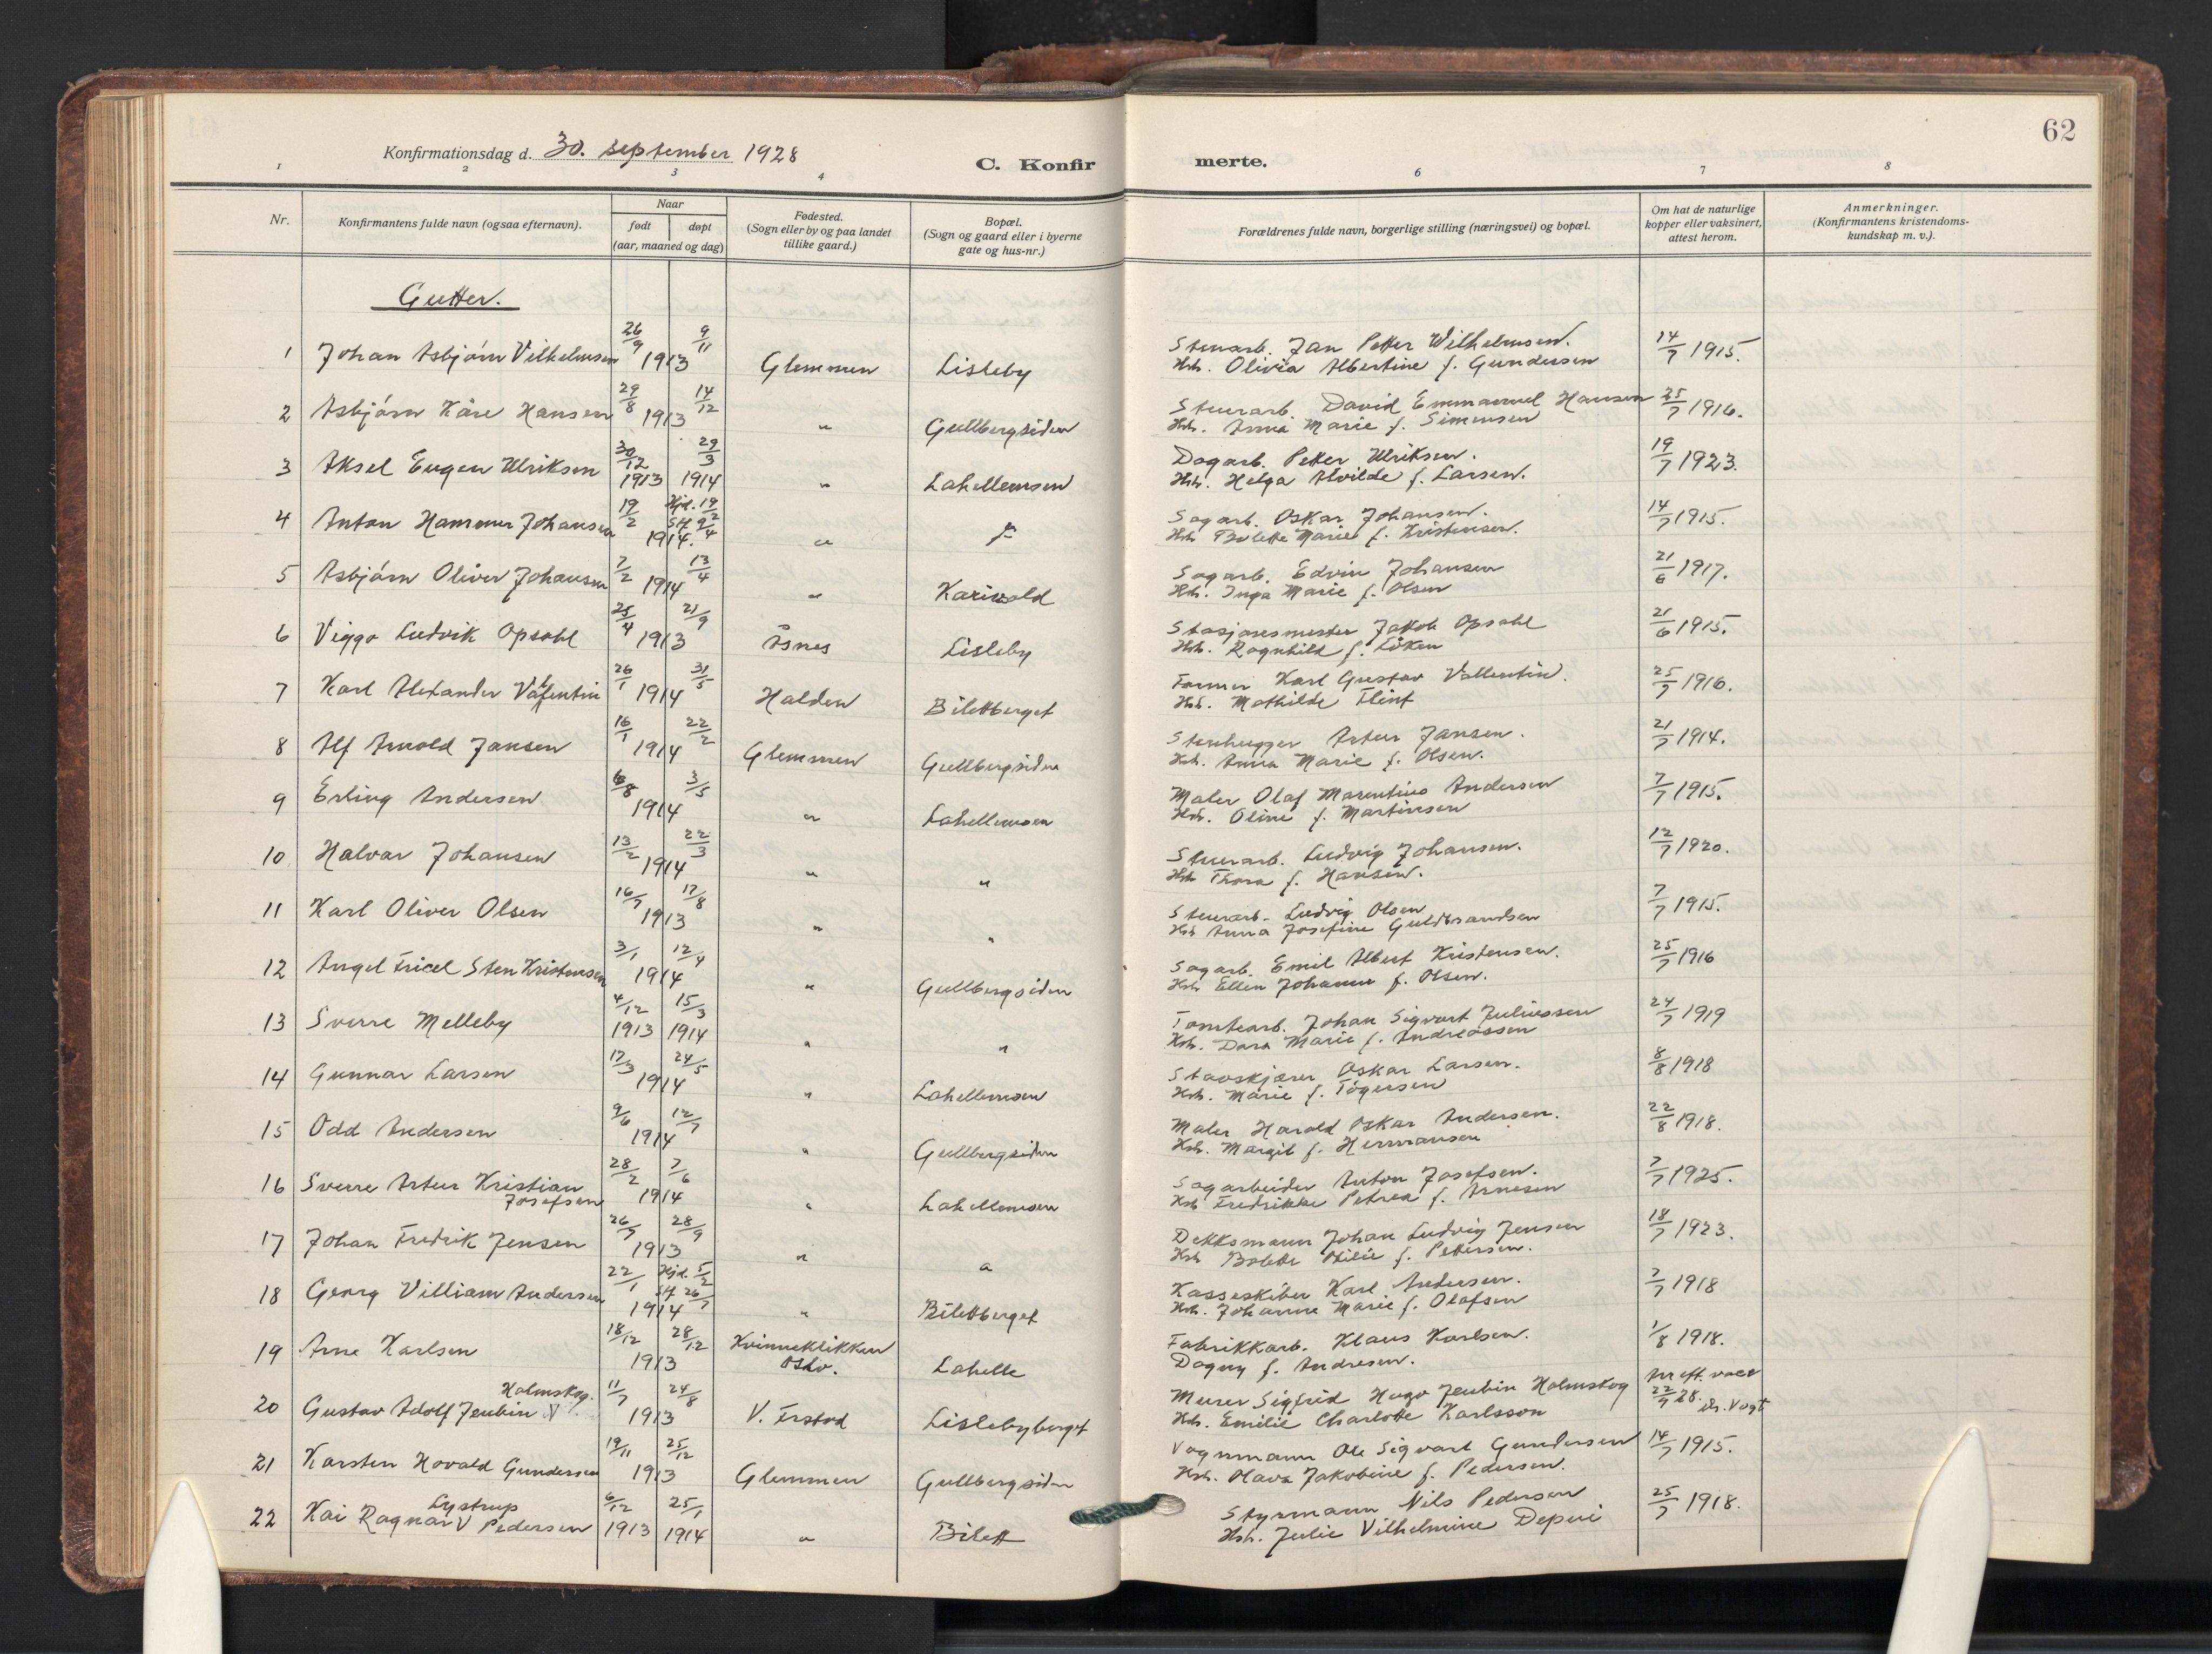 62
Konfirmationsdag d. 30. september 1928
C. Konfir merte.
1 2 3 4 6 7 8
Nr. Konfirmantens fulde navn (ogsaa efternavn). Naar født døpt (aar, maaned og dag) Fødested. (Sogn eller by og paa landet tillike gaard.) Bopæl. (Sogn og gaard eller i byerne gate og hus-nr.) Forældrenes fulde navn, borgerlige stilling (næringsvei) og bopæl. Om hat de naturlige kopper eller vaksinert, attest herom. Anmerkninger. (Konfirmantens kristendoms-kundskap m. v.).
Gutter.
1 Johan Asbjørn Vilhelmsen 26/9 9/11 1913 Glemmen Lisleby Stenarb. Jan Petter Wilhelmsen. 14/7 1915.
Hh. Olivia Albertine f. Gundersen
2 Asbjørn Kåre Hansen 29/8 14/12 1913 " Gullbergsiden Stenarb. David Emmanuel Hansen 25/7 1916.
Hh. Anna Marie f. Simensen
3 Aksel Eugen Ulriksen 30/12 1913 29/3 1914 " Lahellemoen Dagarb. Petter Ulriksen. 19/7 1923.
Hh. Helga Alvilde f. Larsen.
4 Anton Hammer Johansen 19/2 Hjd. 19/2 Stf. 2/4 1914. " " Sagarb. Oskar Johansen. 14/7 1915.
Hh. Bolette Marie f. Kristensen.
5 Asbjørn Oliver Johansen 7/2 13/4 1914 " Karivold Sagarb. Edvin Johansen 21/6 1917.
Hh. Inga Marie f. Olsen
6 Viggo Ludvik Opsahl 25/4 21/9 1913 Åsnes Lisleby Stasjonsmester Jakob Opsahl 21/6 1915.
Hh. Ragnhild f. Løken
7 Karl Alexander Valentin 26/1 31/5 1914 Halden Bilettberget Former Karl Gustav Vallentin. 25/7 1916.
Hh. Mathilde Flint
8 Alf Arnold Jansen 16/1 22/2 1914 Glemmen Gullbergsiden Stenhugger Artur Jansen. 21/7 1914.
Hh. Anna Marie f. Olsen.
9 Erling Andersen 6/8 3/5 1914 " Lahellemoen Maler Olaf Marentius Andersen 7/7 1915.
Hh. Oline f. Martinsen
10 Halvar Johansen 13/2 22/3 1914 " " Stenarb. Ludvig Johansen. 12/7 1920.
Hh Thora f. Hansen.
11 Karl Oliver Olsen 16/7 17/8 1913 " " Stenarb. Ludvig Olsen 7/7 1915.
Hh Anna Josefine Guldbrandsen
12 Angel Fricel Sten Kristensen 3/1 12/4 1914 " Gullbergsiden Sagarb. Emil Albert Kristensen. 25/7 1916
Hh Ellen Johanne f. Olsen.
13 Sverre Melleby 4/12 1913 15/3 1914 " " Tomtearb. Johan Sigvart Juliussen 24/7 1919
Hh. Dora Marie f. Andreassen
14 Gunnar Larsen 17/3 24/5 1914 " Lahellemoen Stavskjærer Oskar Larsen. 8/8 1918
Hh. Marie f. Tøgersen
15 Odd Andersen 9/6 12/7 1914 " Gullbergsiden Maler Harald Oskar Andersen. 22/8 1918.
Hh. Margit f. Hermansen
16 Sverre Artur Kristian Josefsen 28/2 7/6 1914 " Lahellemoen Sagarbeider Anton Josefsen. 7/7 1925.
Hh Fredrikke Petrea f. Arnesen
17 Johan Fredrik Jensen 26/7 28/9 1913 " " Dekksmann Johan Ludvig Jensen 18/7 1923.
Hh Bolette Otilie f. Pettersen.
18 Georg Villiam Andersen 22/1 Hjd. 5/2 Stf 26/7 1914 " Bilettberget Kasseskriver Karl Andersen. 7/7 1918
Hh. Johanne Marie f. Olafsen
19 Arne Karlsen 18/12 28/12 1913 Kvinneklikken Oslo. Lahelle Fabrikkarb. Klaus Karlsen. 1/8 1918.
Dagny f. Andresen.
20 Gustav Adolf Jenbin V Holmskog. 11/7 24/8 1913 V. Frstad Lislebyberget Murer Sigfrid Hugo Jenbin Holmskog 22/7 28. dr. Vogt
Hh. Emilie Charlotte Karlsson
21 Karsten Hovald Gundersen 19/11 25/12 1913 Glemmen Gullbergsiden Vognmann Ole Sigvart Gundersen 14/7 1915.
Hh. Olava Jakobine f. Pedersen.
22 Kai Ragnar V Lystrup Pedersen 6/12 1913 25/1 1914 " Bilett Styrmann Nils Pedersen 25/7 1918.
Hh. Julie Vilhelmine Depui